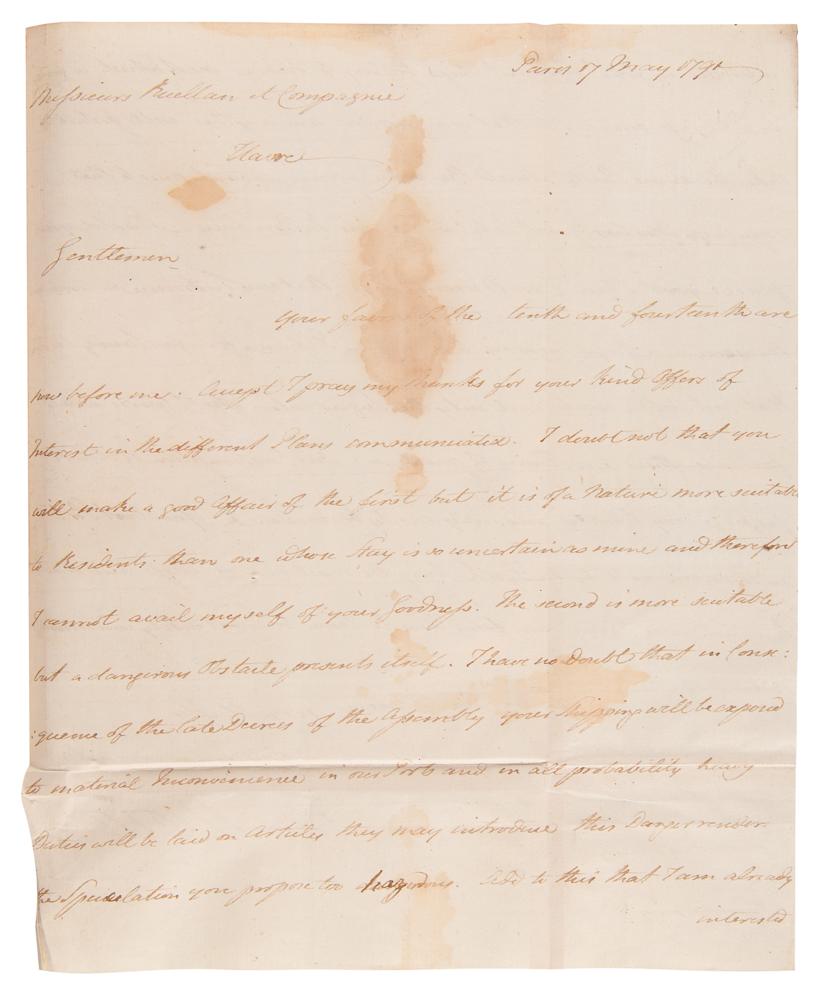 Paris 17 May 1791
Messieurs Ruellan et Compagnie
Havre
Gentlemen
Your favors of the tenth and fourteenth are
now before me. Accept I pray my thanks for your kind Offers of
Interest in the different Plans communicated. I doubt not that you
will make a good Affair of the first but it is of a Nature more suitable
to Residents than one whose Stay is so uncertain as mine and therefore
I cannot avail myself of your Goodness. The second is more suitable
but a dangerous Obstacle presents itself. I have no Doubt that in Conse:
:quence of the late Decrees of the Assembly your Shipping will be exposed
to material Inconvenience in our Ports and in all probability heavy
Duties will be laid on Articles they may introduce this Danger renders
the Speculation you propose too hazardous. Add to this that I am already
interested